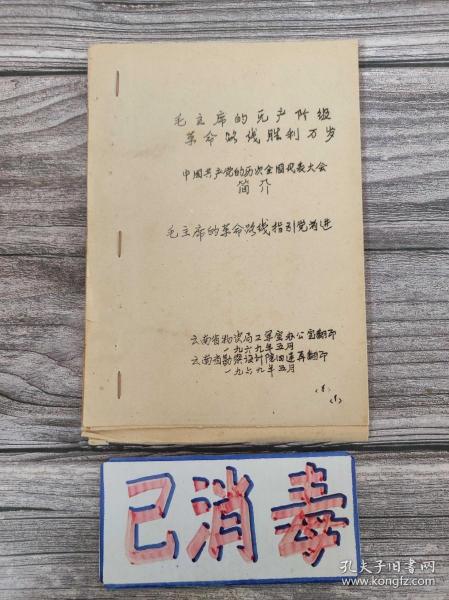 毛主席的无产阶级
革命路线胜利万岁
中国共产党的历次全国代表大会
简介
毛主席的革命路线指引党前进
云南省物资局工军宣办公室翻印
一九六九年五月
云南省勘察设计院四连再翻印
一九六九年五月
已消毒
孔夫子旧书网
www.kongfz.com